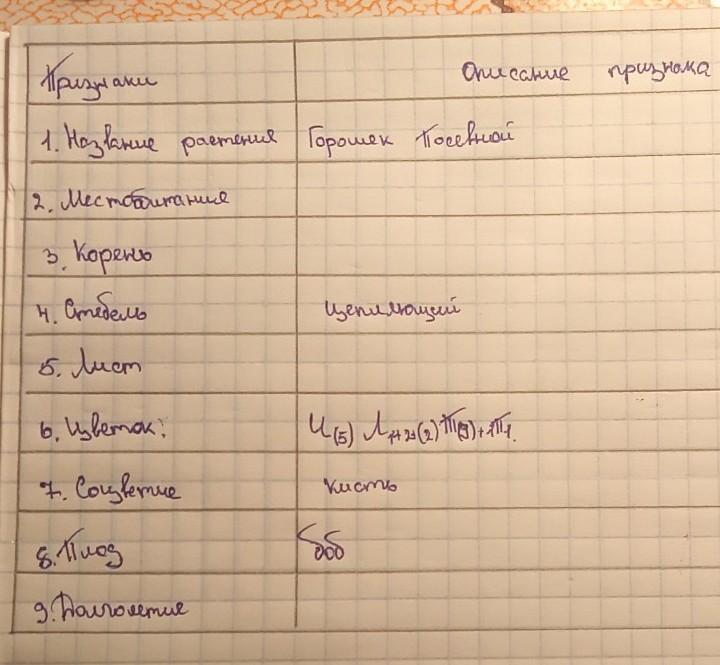 Признаки Описание признака
1. Название растения Горошек Посевной
2. Местообитания
3. Корень
4. Стебель цепляющий
5. Лист
6. Цветок: Ч(5) Л1+2+(2) Т(9)+1П1.
7. Соцветие кисть
8. Плод боб
9. Долголетие